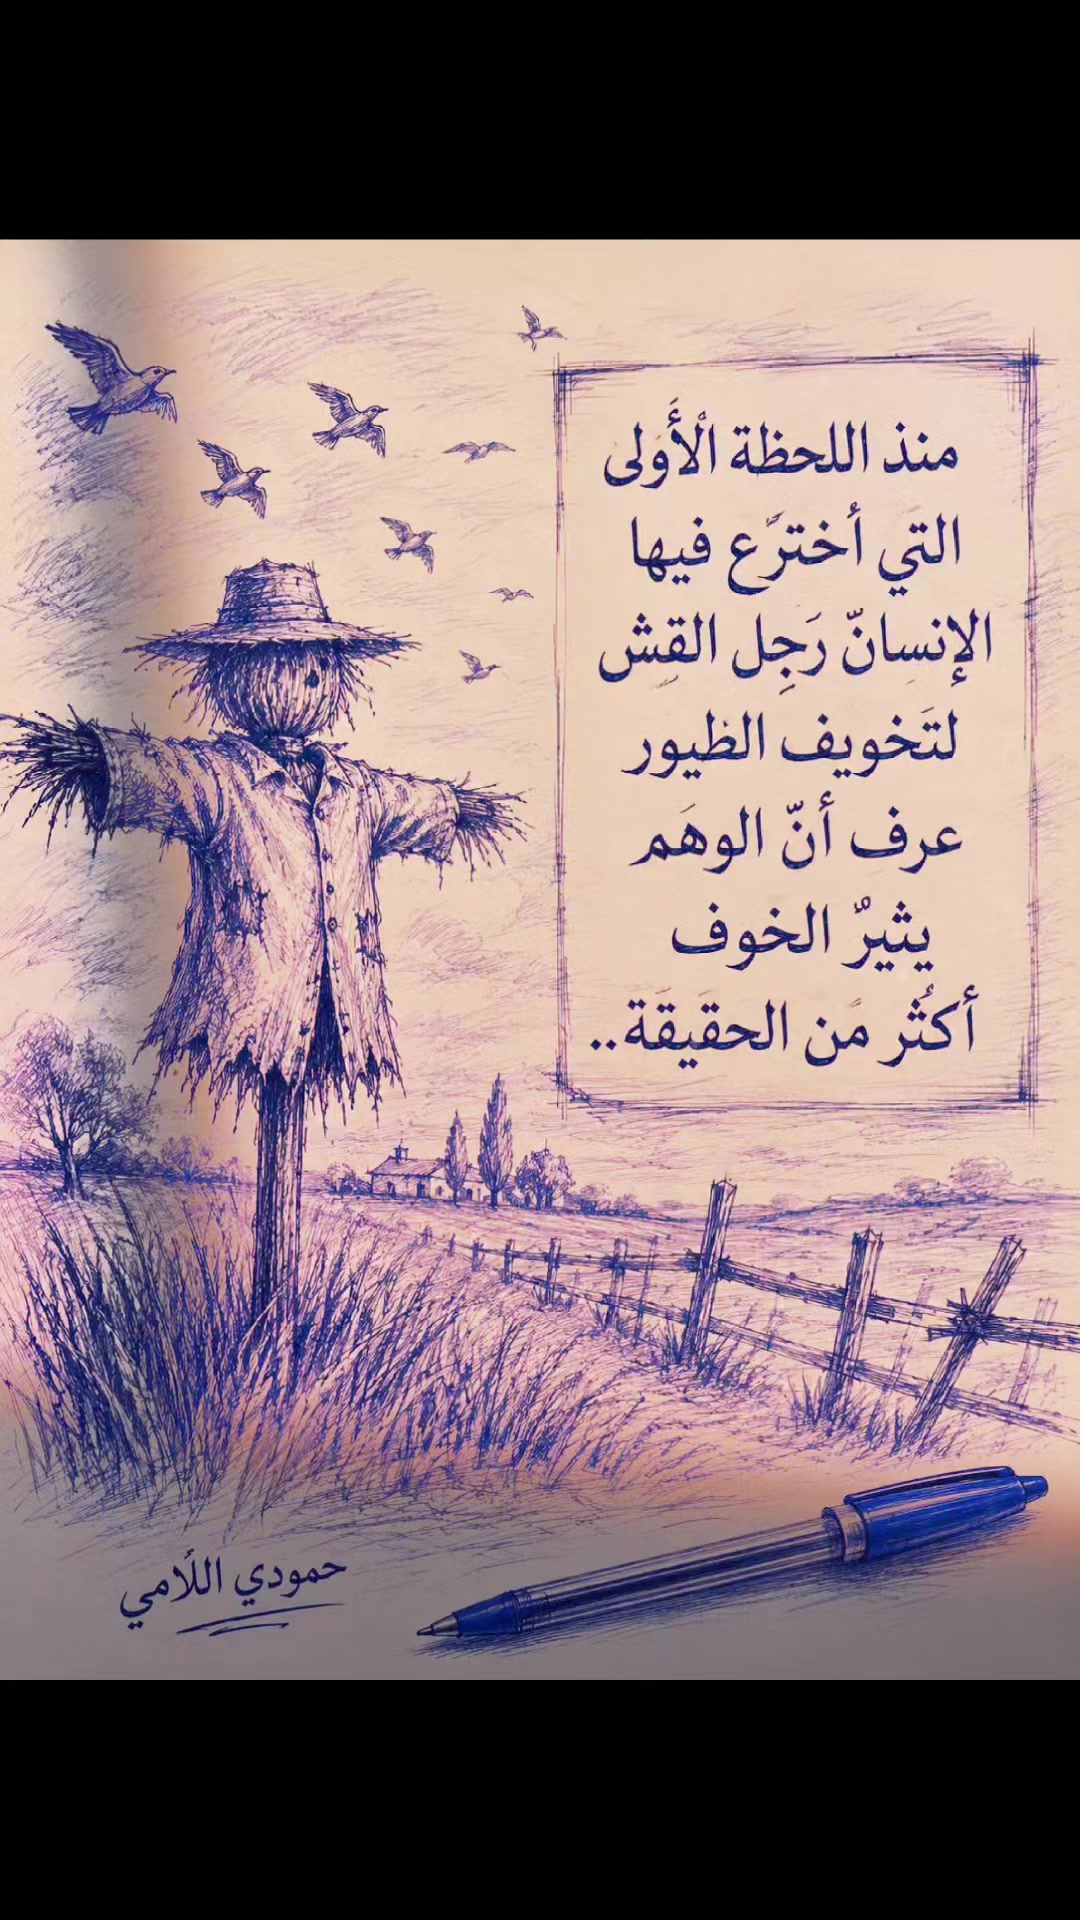 منذ اللحظة الْأَولى
التَي أختَرَع فيها
الإنسانّ رَجِل القِش
لتَخويف الطيور
عرف أنّ الوهَم
يثيرٌ الخوف
أكثُر مَن الحقَيقَة..
حمودي اللُامي